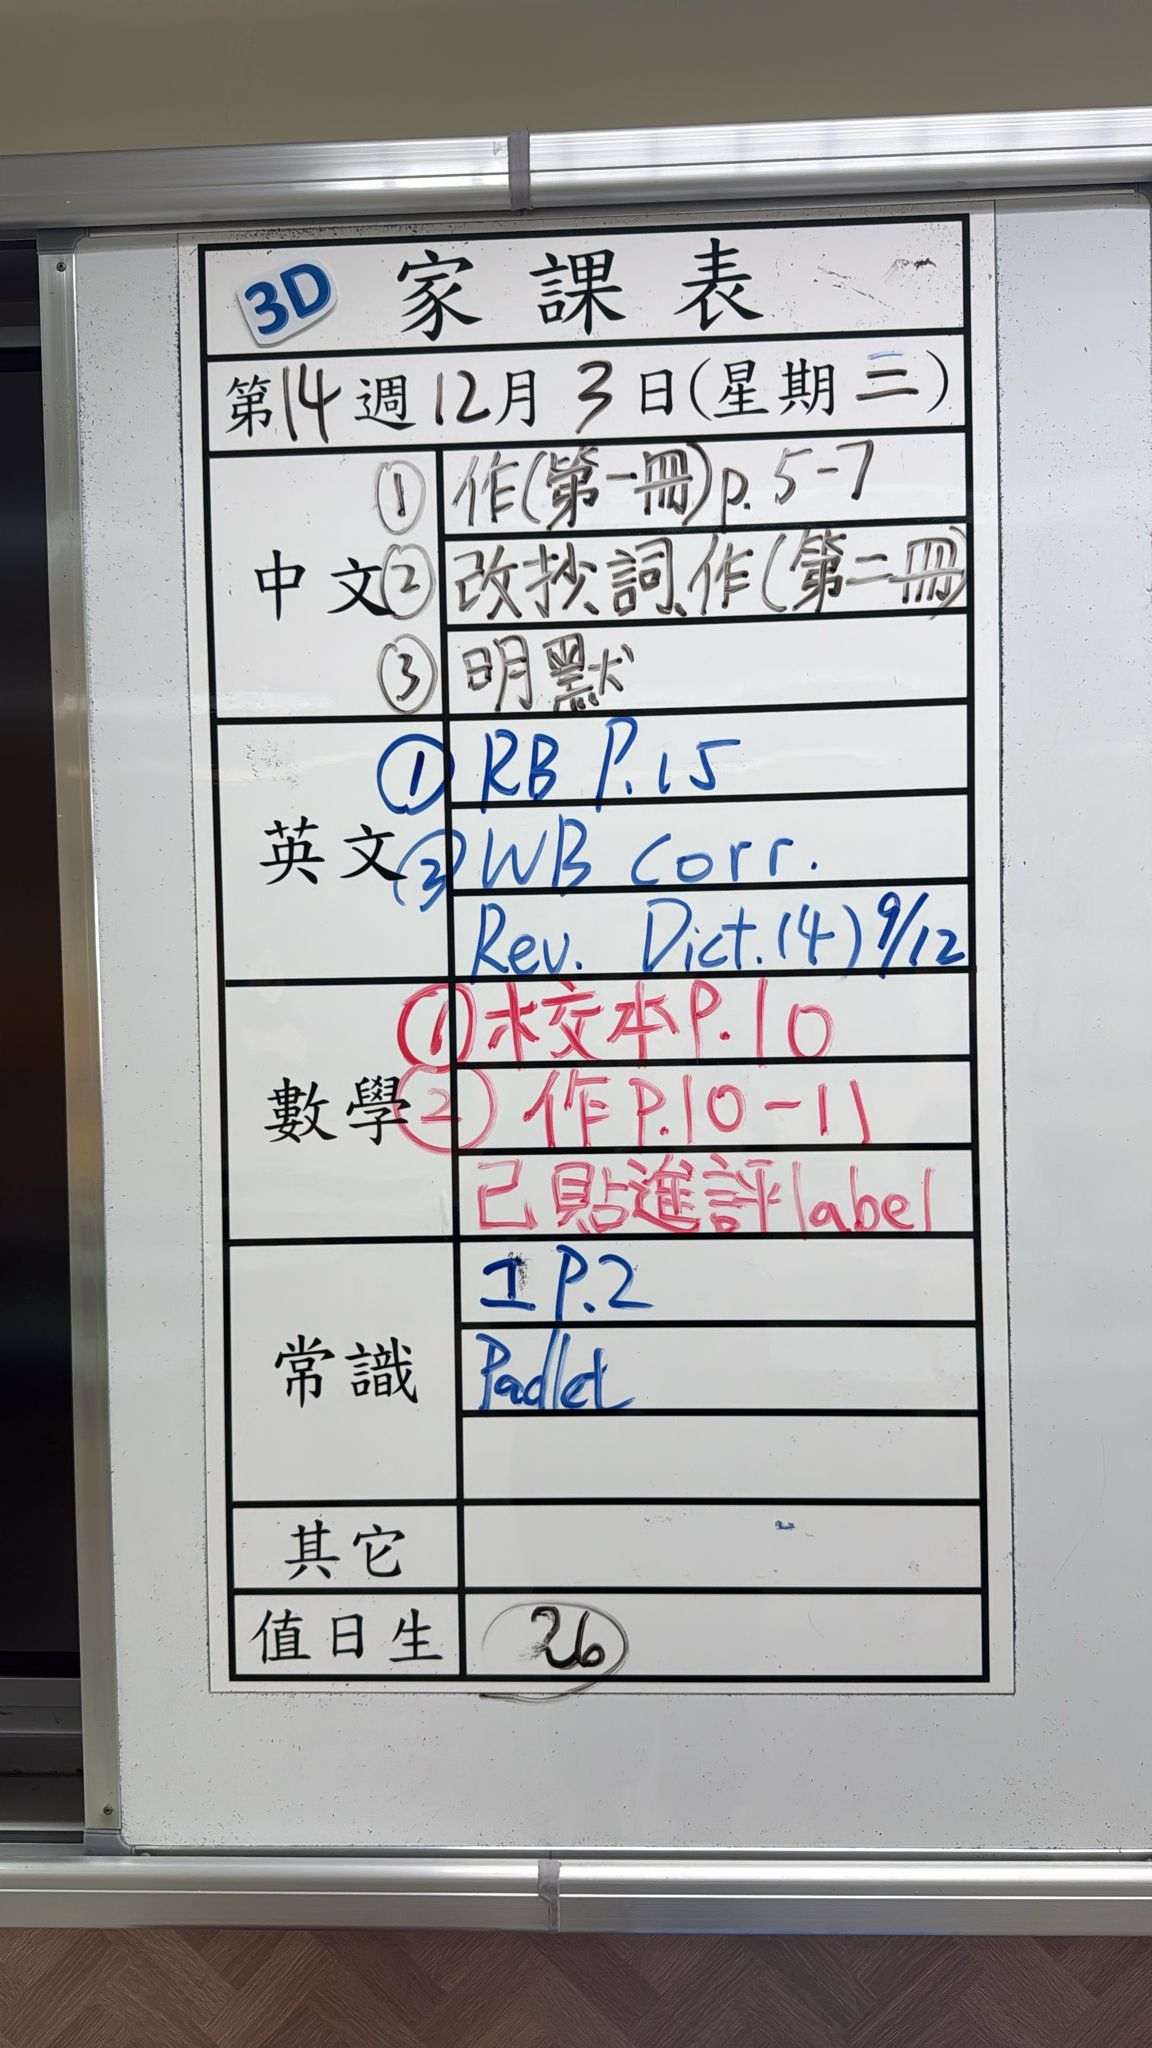 3D 家課表
第14週12月3日(星期三)
中文
① 作(第一冊)p.5-7
② 改抄詞、作(第二冊)
③ 明默
英文
① RB P.15
② WB corr.
Rev. Dict.(4) 9/12
數學
① 校本P.10
② 作P.10-11
已貼進評label
常識
工P.2
Padlet
其它
值日生 26